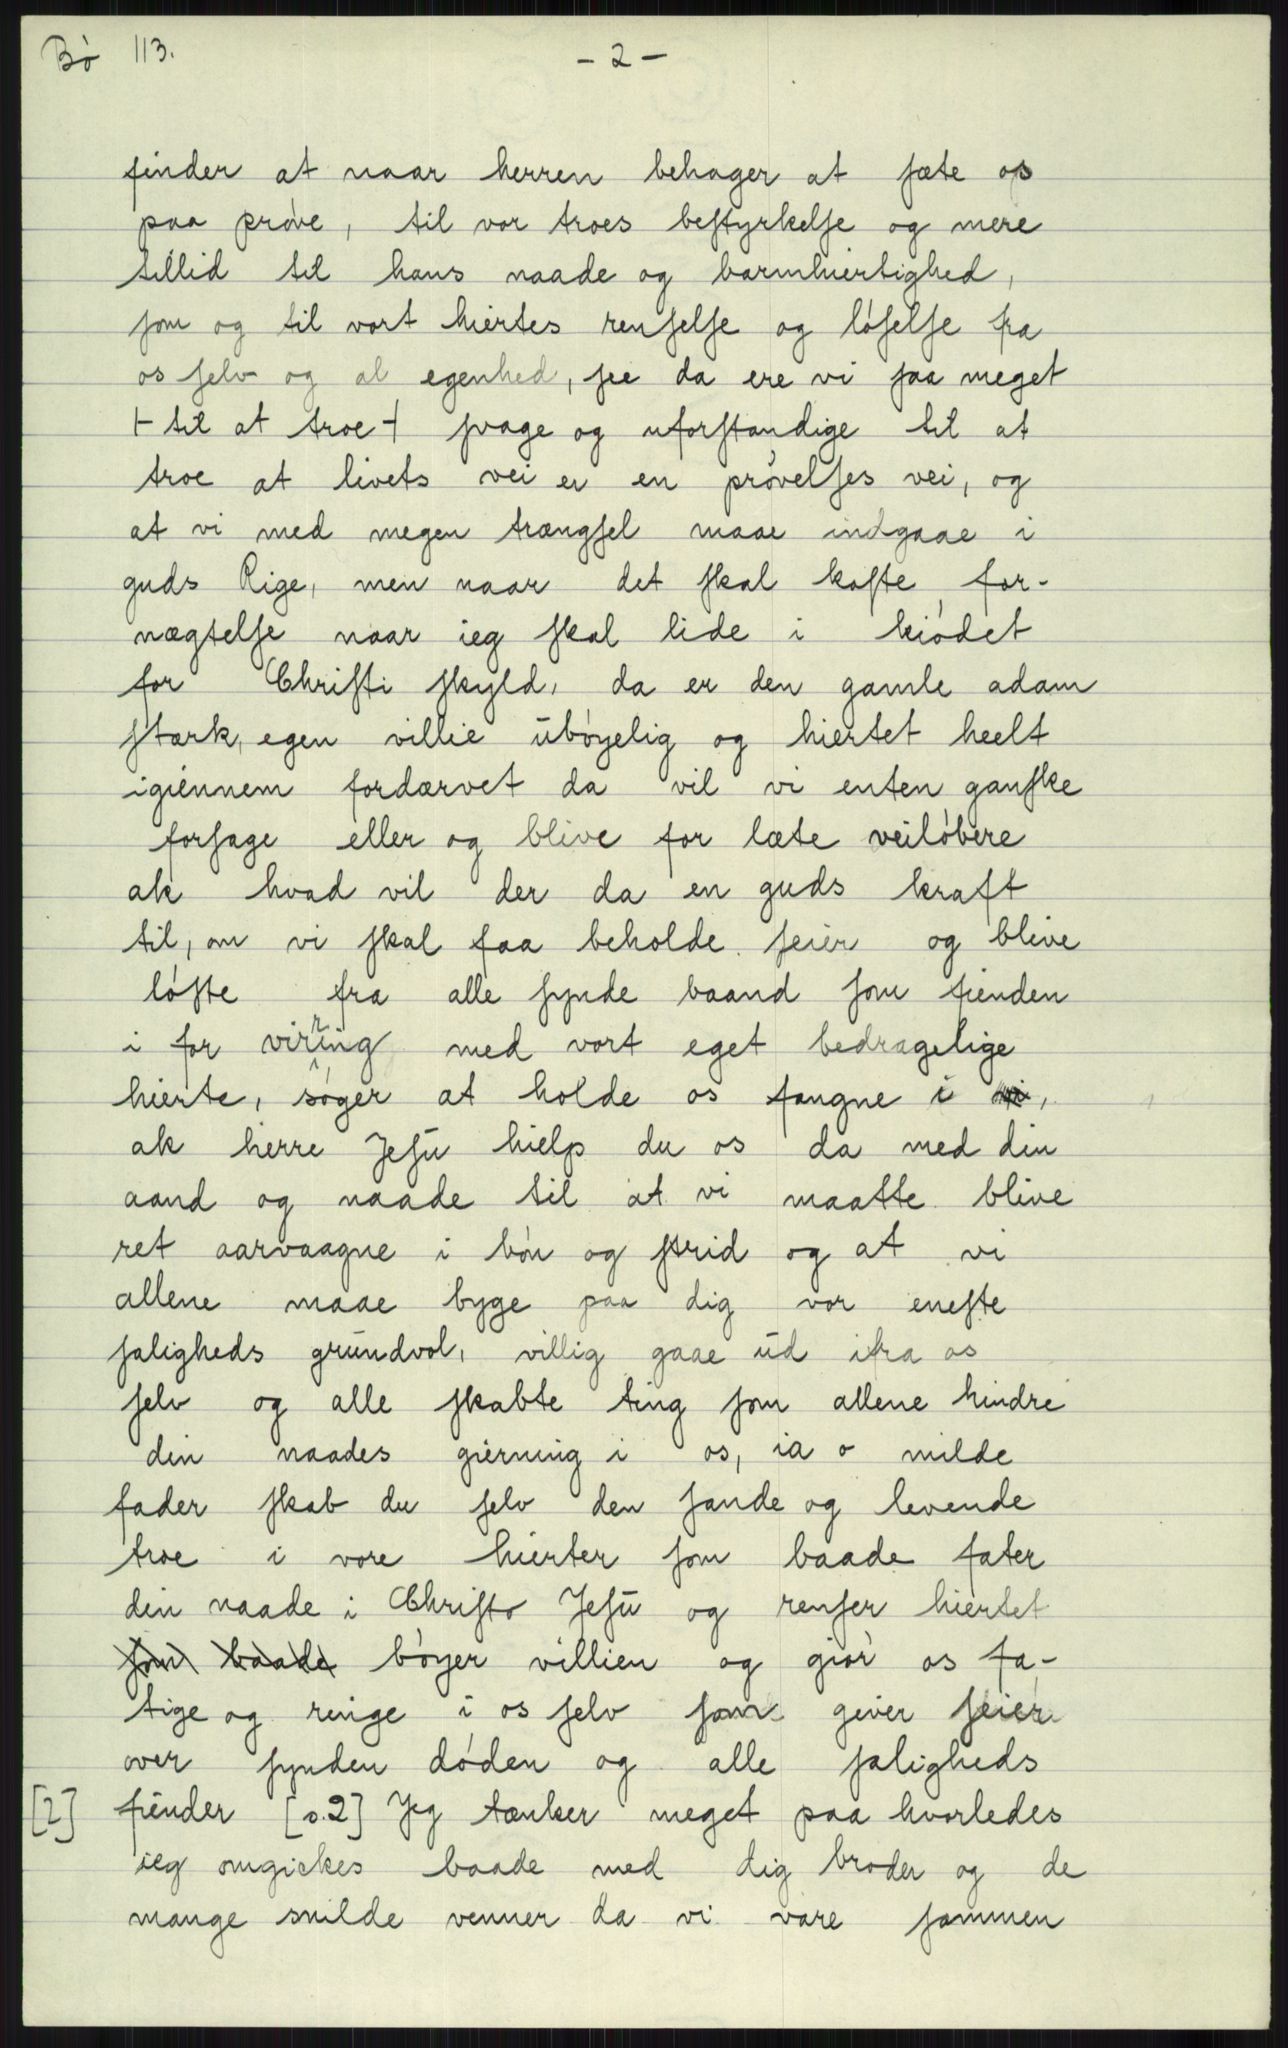 Bø 113. - 2 -
finder at naar herren behager at sæte os
paa prøve, til vor troes bestyrkelse og mere
tillid til hans naade og barmhiertighed,
som og til vort hiertes renselse og løselse fra
os selv og al egenhed, see da ere vi saa meget
⊢ til at troe ⊣ svage og uforstandige til at
troe at livets vei er en prøvelses vei, og
at vi med megen trængsel maae indgaae i
guds Rige, men naar det skal koste for-
nægtelse naar ieg skal lide i kiødet
for Christi skyld, da er den gamle adam
stærk, egen villie ūbøyelig og hiertet heelt
igiennem fordærvet da vil vi enten ganske
forsage eller og blive for læte veiløbere
ak hvad vil der da en guds kraft
til, om vi skal faa beholde seier og blive
løste fra alle synde baand som fienden
i for virring med vort eget bedragelige
hierte, søger at holde os fangne i
ak herre Jesū hielp du os da med din
aand og naade til at vi maatte blive
ret aarvaagne i bøn og strid og at vi
allene maae byge paa dig vor eneste
saligheds grūndvol, villig gaae ūd ifra os
selv og alle skabte ting som allene hindre
din naades gierning i os, ia o milde
fader skab du selv den sande og levende
troe i vore hierter som baade fater
din naade i Christo Jesū og renser hiertet
som baade bøyer villien og giør os fa-
tige og ringe i os selv som giver seier
over synden døden og alle saligheds
[2] fiender [s.2] Jeg tænker meget paa hvorledes
ieg omgickes baade med dig broder og de
mange snilde venner da vi vare sammen